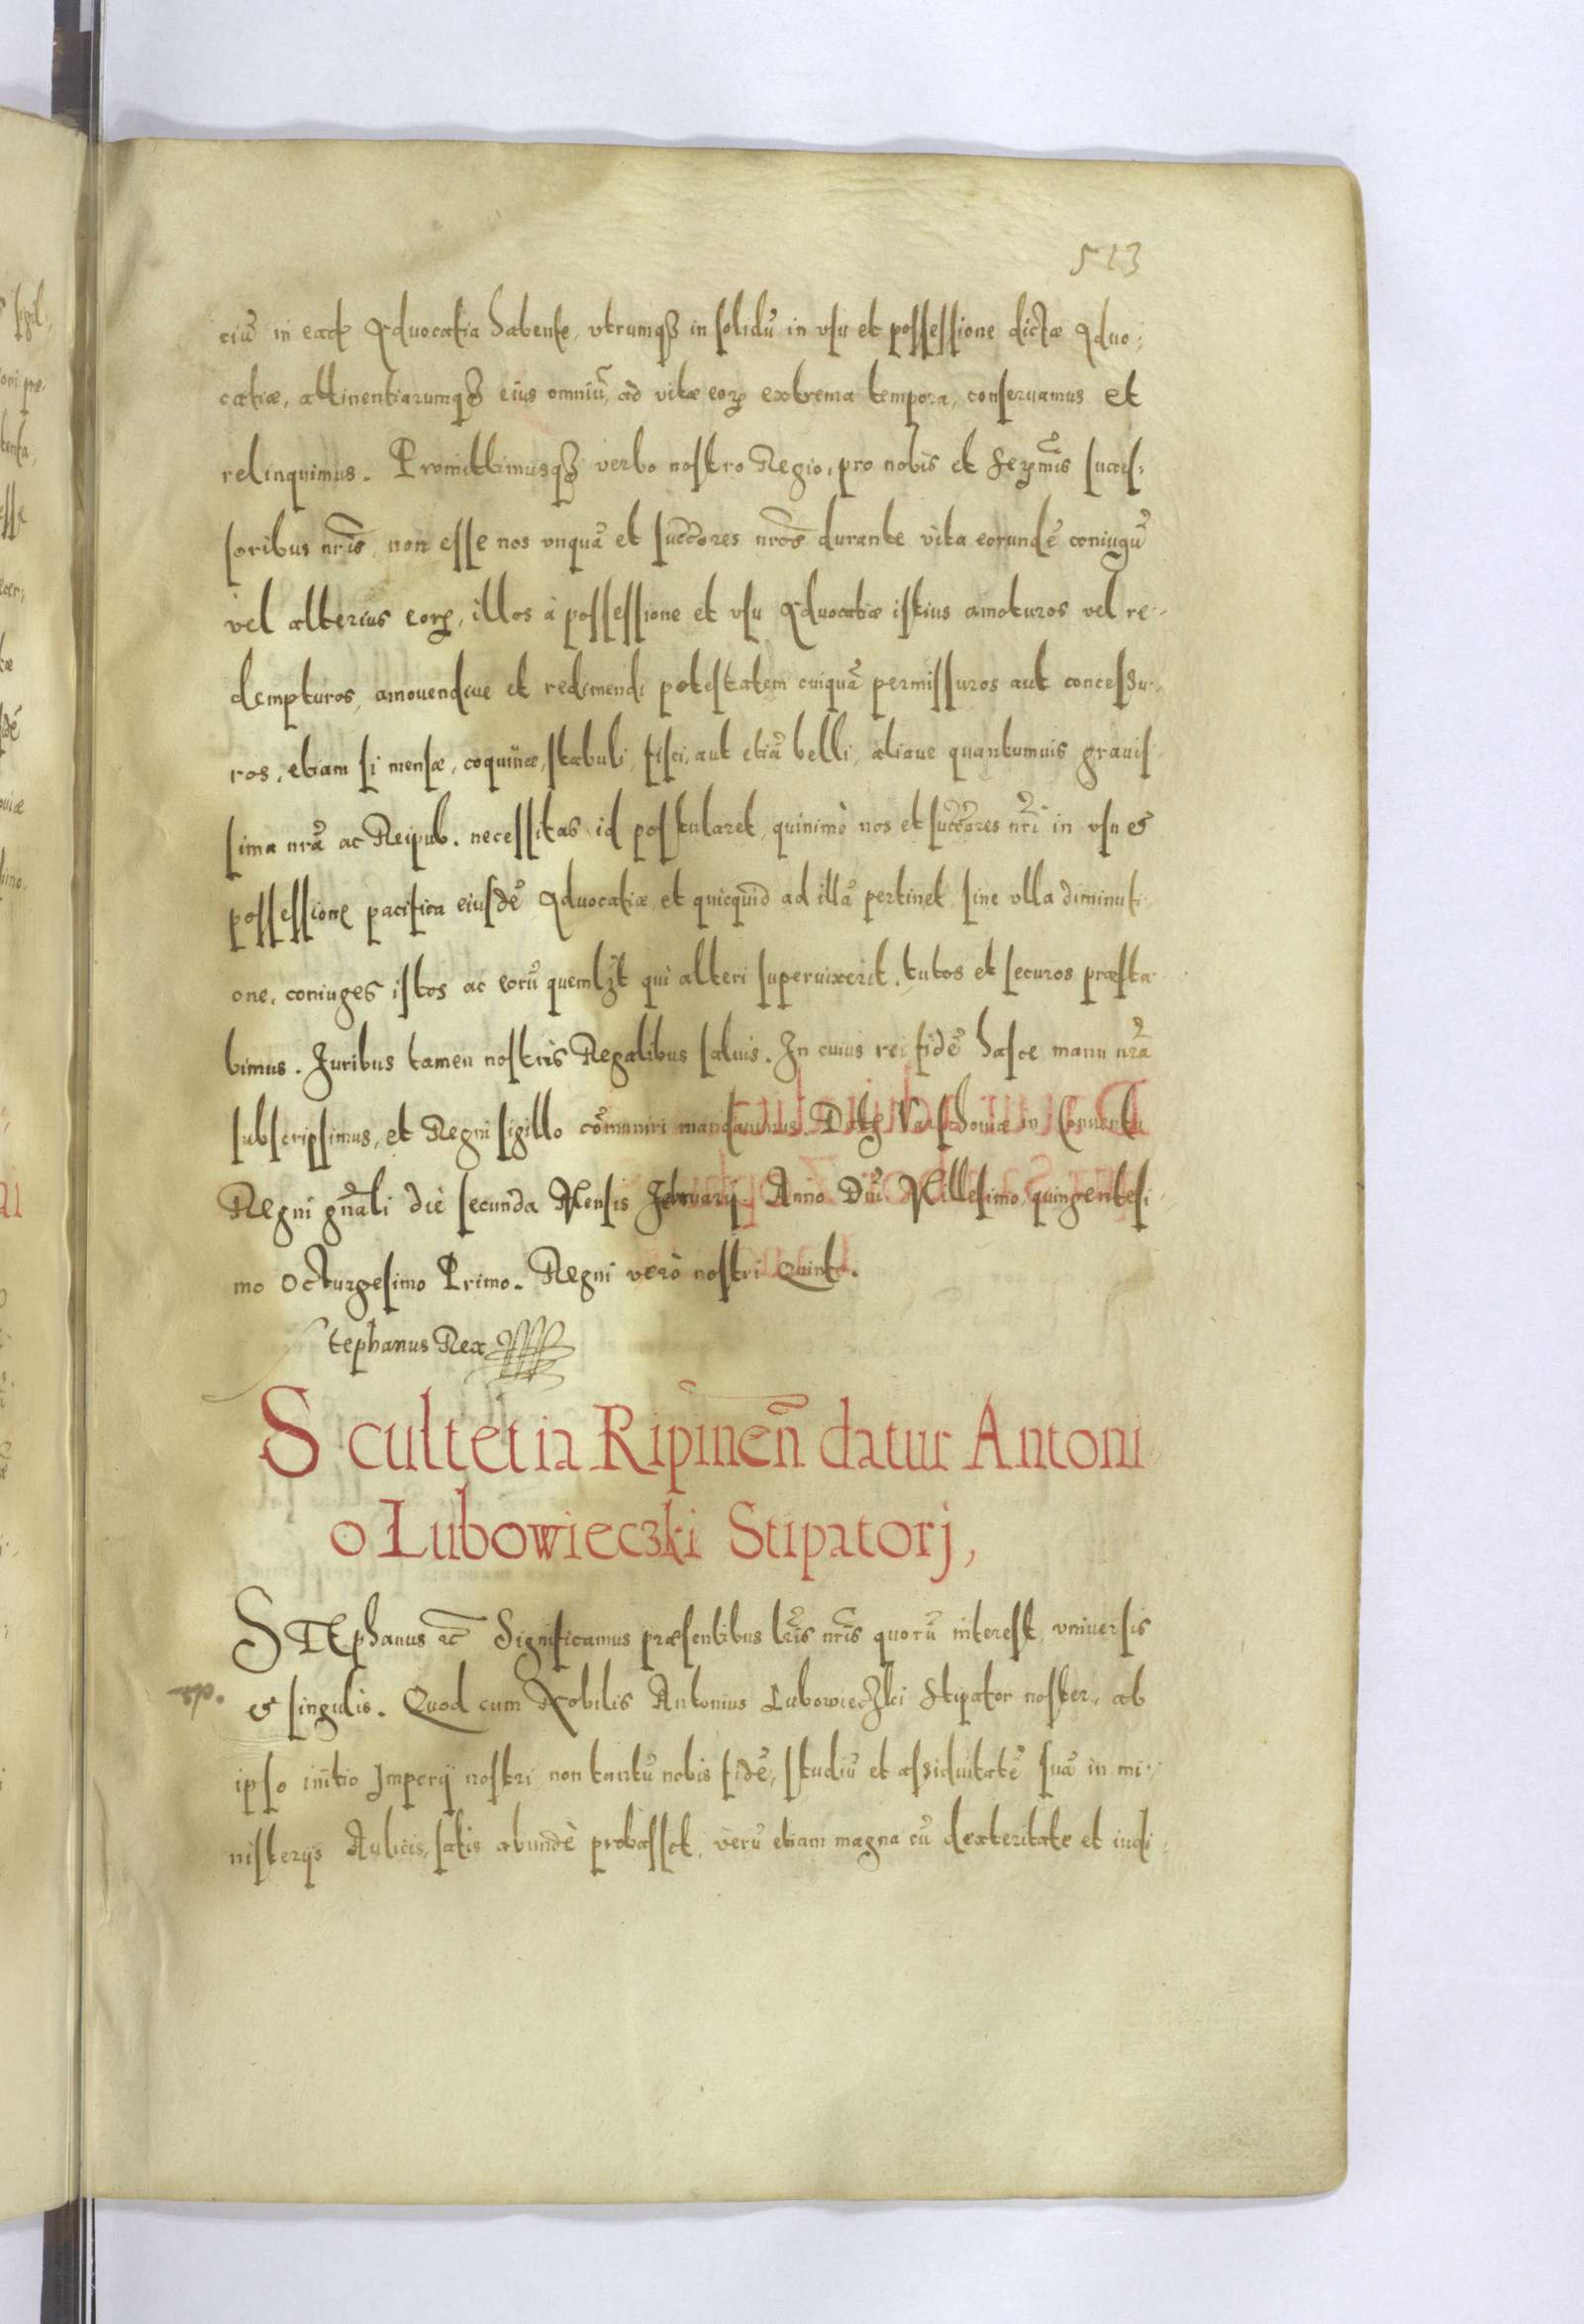 513
ciũ in eadẽ Aduocatia habente, vtrumqȝ in solidũ in vsu et possessione dictæ Aduo-
catiæ, attinentiarumqȝ eius omniũ, ad vitæ eorꝝ extrema tempora, conseruamus et
relinquimus. Promittimusqȝ verbo nostro Regio, pro nobis et Serm̃is succes-
soribus nrĩs, non esse nos vnquã et succ̃ores nrõs durante vita eorundẽ coniugũ
vel alterius eorꝝ, illos à possessione et vsu Aduocatiæ istius amoturos vel re-
dempturos, amouendiue et redimendi potestatem cuiquã permissuros aut concessu-
ros, etiam si mensæ, coquinæ, stabuli, fisci, aut etiã belli, aliaue quantumuis grauis-
sima nrã ac Reipub. necessitas id postularet, quinimò nos et succ̃ores nrĩ in vsu et
possessione pacifica eiusdẽ Aduocatiæ, et quicquid ad illã pertinet, sine vlla diminuti-
one, coniuges istos ac eorũ quemlȝt qui alteri superuixerit, tutos et securos præsta-
bimus. Juribus tamen nostris Regalibus saluis. In cuius rei fidẽ hasce manu nrã
subscripsimus, et Regni sigillo cõmuniri mandauimus. Datꝝ Varschouiæ in Conuentu
Regni gnãli diè secunda Mensis Februarij. Anno Dnĩ Millesimo, quingentesi-
mo Octuagesimo Primo. Regni verò nostri Quinto.
Stephanus Rex
Scultetia Ripineñ datur Antoni
o Lubowieczki Stipatorj,
STEphanus ꝛc̃ Significamus præsentibus lrĩs nrĩs quorũ interest, vniuersis
et singulis. Quod cum Nobilis Antonius Lubowieczki Stipator noster, ab
ipso initio Imperij nostri non tantũ nobis fidẽ, studiũ et assiduitatẽ suã in mi-
nisterijs Aulicis, satis abundè probasset, verũ etiam magna cũ dexteritate et iudi-